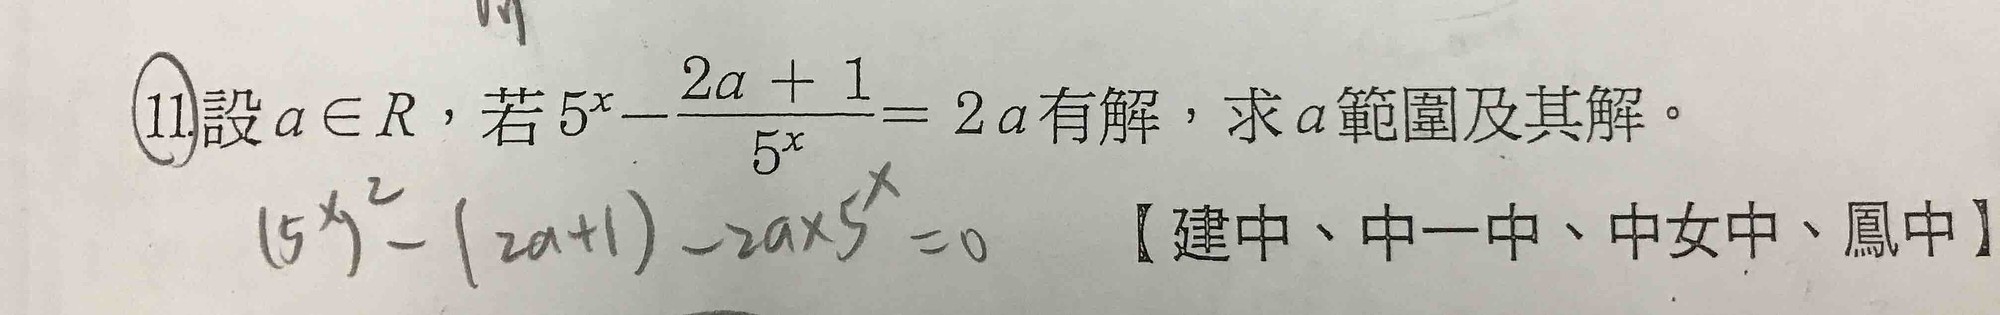 11.設a∈R，若5^x－(2a＋1)/5^x＝2a有解，求a範圍及其解。
(5^x)^2－(2a+1)－2a×5^x=0
【建中、中一中、中女中、鳳中】